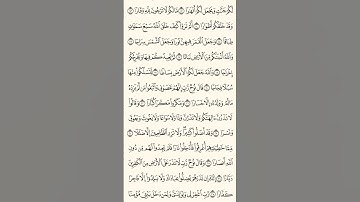 لَكُمْ جَنَّٰتٍ وَيَجْعَل لَّكُمْ أَنْهَٰرًا ١٢ مَّا لَكُمْ لَا تَرْجُونَ لِلَّهِ وَقَارًا ١٣
وَقَدْ خَلَقَكُمْ أَطْوَارًا ١٤ أَلَمْ تَرَوْا۟ كَيْفَ خَلَقَ ٱللَّهُ سَبْعَ سَمَٰوَٰتٍ
طِبَاقًا ١٥ وَجَعَلَ ٱلْقَمَرَ فِيهِنَّ نُورًا وَجَعَلَ ٱلشَّمْسَ سِرَاجًا ١٦
وَٱللَّهُ أَنۢبَتَكُم مِّنَ ٱلْأَرْضِ نَبَاتًا ١٧ ثُمَّ يُعِيدُكُمْ فِيهَا وَيُخْرِجُكُمْ
إِخْرَاجًا ١٨ وَٱللَّهُ جَعَلَ لَكُمُ ٱلْأَرْضَ بِسَاطًا ١٩ لِّتَسْلُكُوا۟ مِنْهَا
سُبُلًا فِجَاجًا ٢٠ قَالَ نُوحٌ رَّبِّ إِنَّهُمْ عَصَوْنِى وَٱتَّبَعُوا۟ مَن لَّمْ يَزِدْهُ
مَالُهُۥ وَوَلَدُهُۥٓ إِلَّا خَسَارًا ٢١ وَمَكَرُوا۟ مَكْرًا كُبَّارًا ٢٢ وَقَالُوا۟
لَا تَذَرُنَّ ءَالِهَتَكُمْ وَلَا تَذَرُنَّ وَدًّا وَلَا سُوَاعًا وَلَا يَغُوثَ وَيَعُوقَ
وَنَسْرًا ٢٣ وَقَدْ أَضَلُّوا۟ كَثِيرًا وَلَا تَزِدِ ٱلظَّٰلِمِينَ إِلَّا ضَلَٰلًا ٢٤
مِّمَّا خَطِيٓـَٰٔتِهِمْ أُغْرِقُوا۟ فَأُدْخِلُوا۟ نَارًا فَلَمْ يَجِدُوا۟ لَهُم مِّن دُونِ
ٱللَّهِ أَنصَارًا ٢٥ وَقَالَ نُوحٌ رَّبِّ لَا تَذَرْ عَلَى ٱلْأَرْضِ مِنَ ٱلْكَٰفِرِينَ
دَيَّارًا ٢٦ إِنَّكَ إِن تَذَرْهُمْ يُضِلُّوا۟ عِبَادَكَ وَلَا يَلِدُوٓا۟ إِلَّا فَاجِرًا
كَفَّارًا ٢٧ رَّبِّ ٱغْفِرْ لِى وَلِوَٰلِدَىَّ وَلِمَن دَخَلَ بَيْتِىَ مُؤْمِنًا